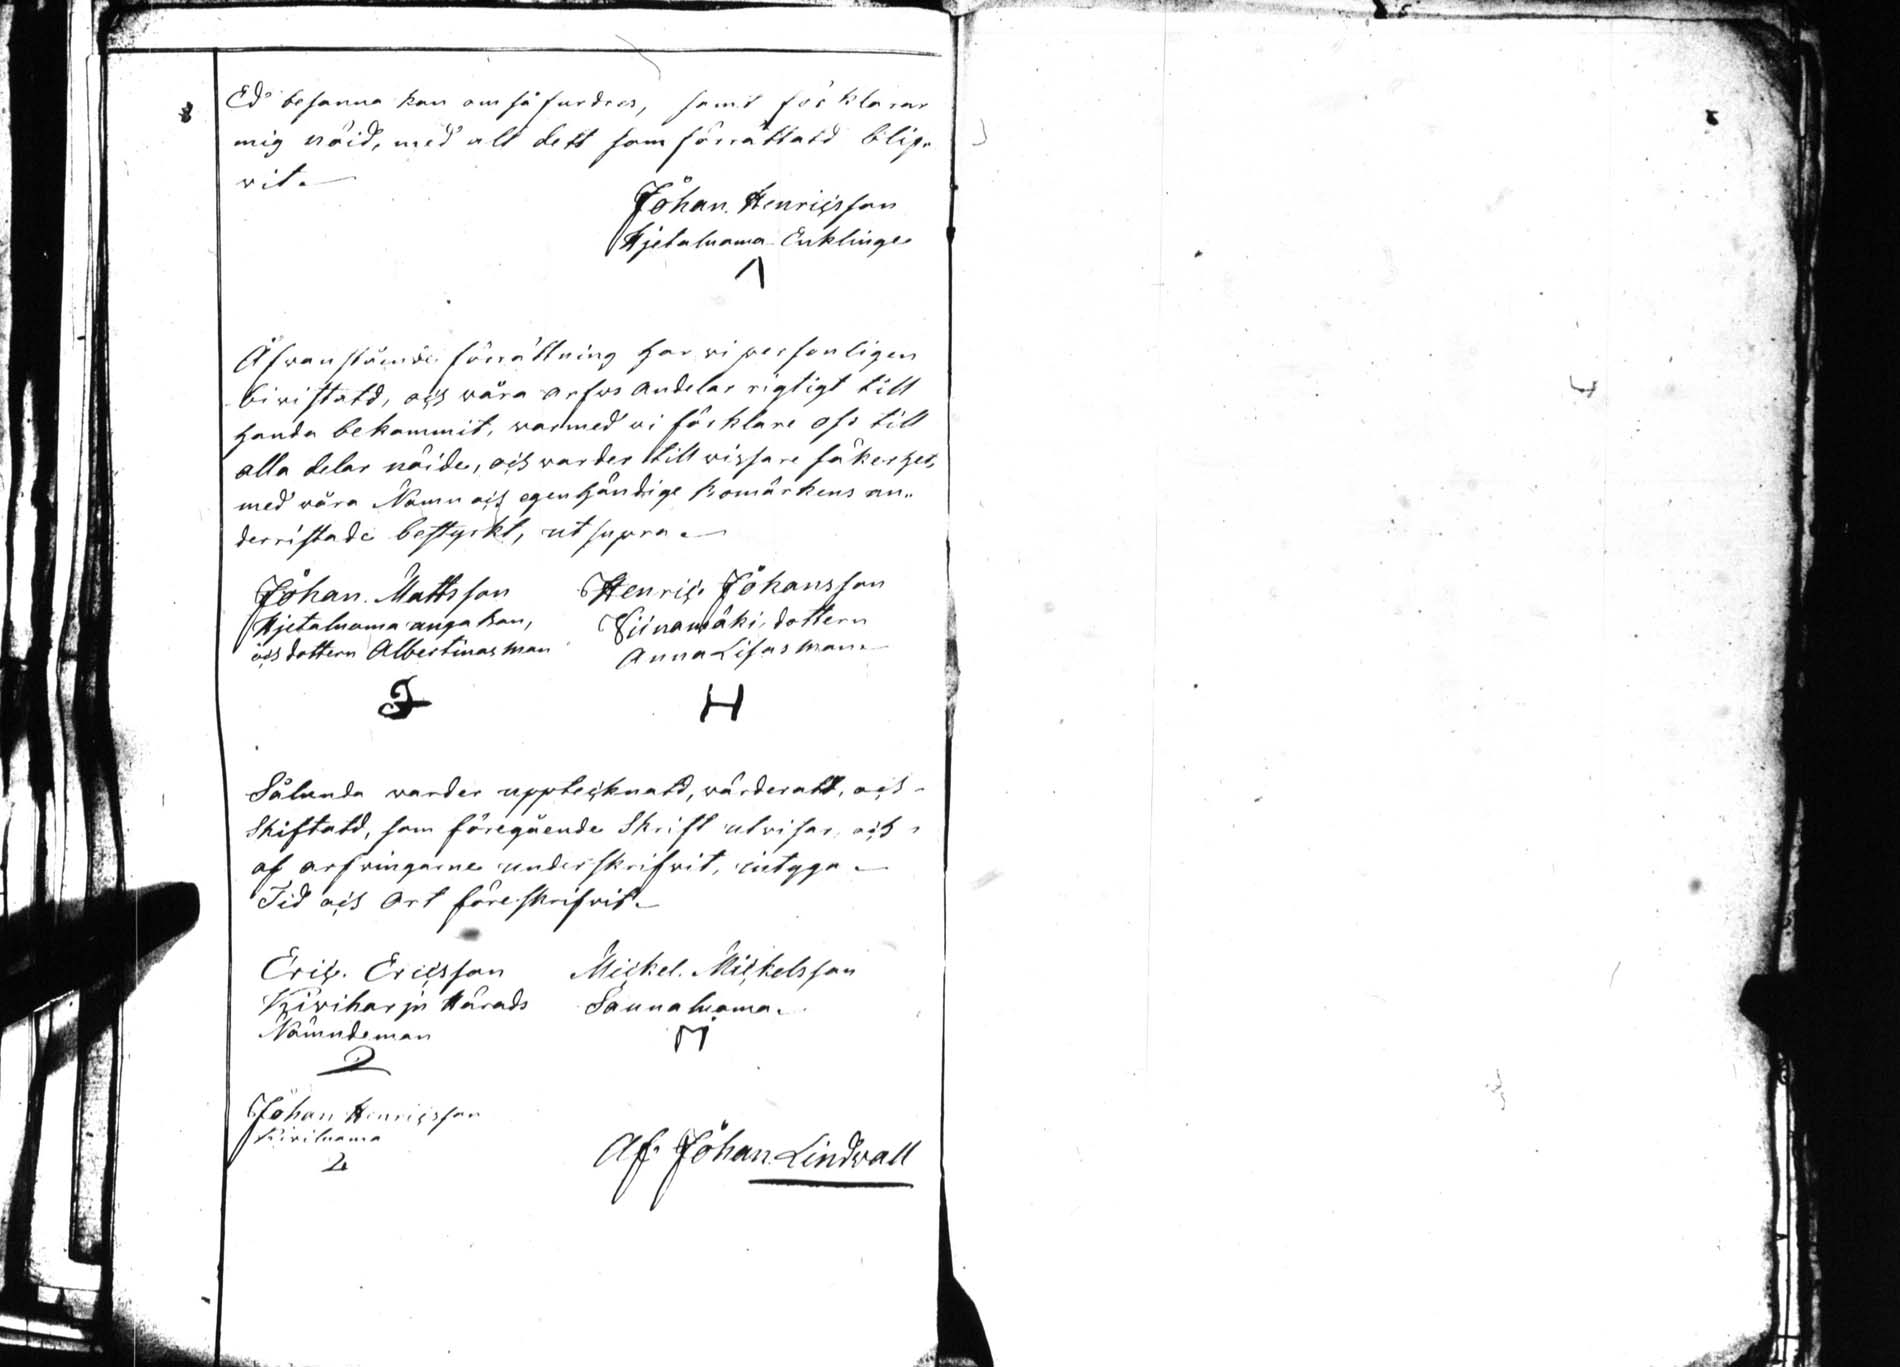 Ed besanna kan om så fordras, samt förklarar
mig nöid, med alt dett som förrättatd blif„
vit.
Johan Henricsson
Hjetaluoma Enklinge
Åfvanstående förrättning har vi personligen
bivistatd, och våra arfvs andelar rigtigt till
handa bekommit, varmed vi förklare oss till
alla delar nöide, och varder till vissare säkerhet,
med våra Namn och egenhändige bomärkens un„
derristade bestyrkt, ut supra.
Johan Mattsson Henric Johansson
Hjetaluoma unga kan, Viinamäki, dottern
och dottern Albertinas man Anna Lisas man.
J H
Sålunda varder upptecknatd, värderatt, och
Skiftatd, som föregående Skrift utvisar, och
af arfvingarne underskrifvit, intyga
Tid och Ort föreskrifvit.
Eric Ericsson Mickel Mickelsson
Kiviharju Härads Saunaluoma.
Nämndeman M
Johan Henricsson
Kiviluoma
Af Johan Lindvall